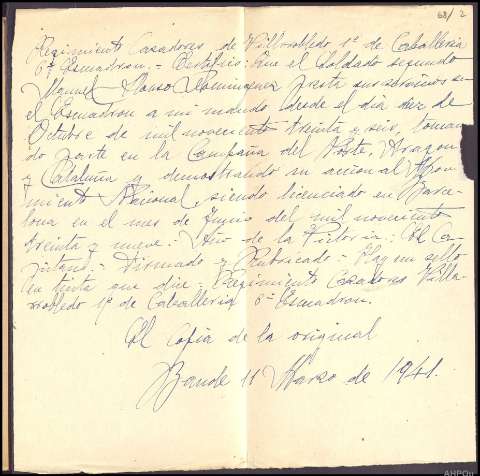 68/2
Regimiento Cazadores de Villarrobledo 1º de Caballeria
6º Escuadron.- Certifico: Que el Soldado segundo
Manuel Alonso Dominguez presta sus servicios en
el Escuadron a mi mando desde el dia diez de
Octubre de mil novecientos treinta y seis, toman
do parte en la Campaña del Norte, Aragon
y Cataluña y demostrando su
miento Nacional siendo licenciado en Barce-
lona en el mes de Junio del mil novecientos
treinta y nueve.- Año de la Victoria.- El Ca-
pitan.- Firmado y Rubricado.- Hay un sello
en tinta que dice: Regimiento Cazadores Villa-
rrobledo 1º de Caballeria 6º Escuadron.
Es copia de la original
Bande 11 Marzo de 1941.
AHPOu